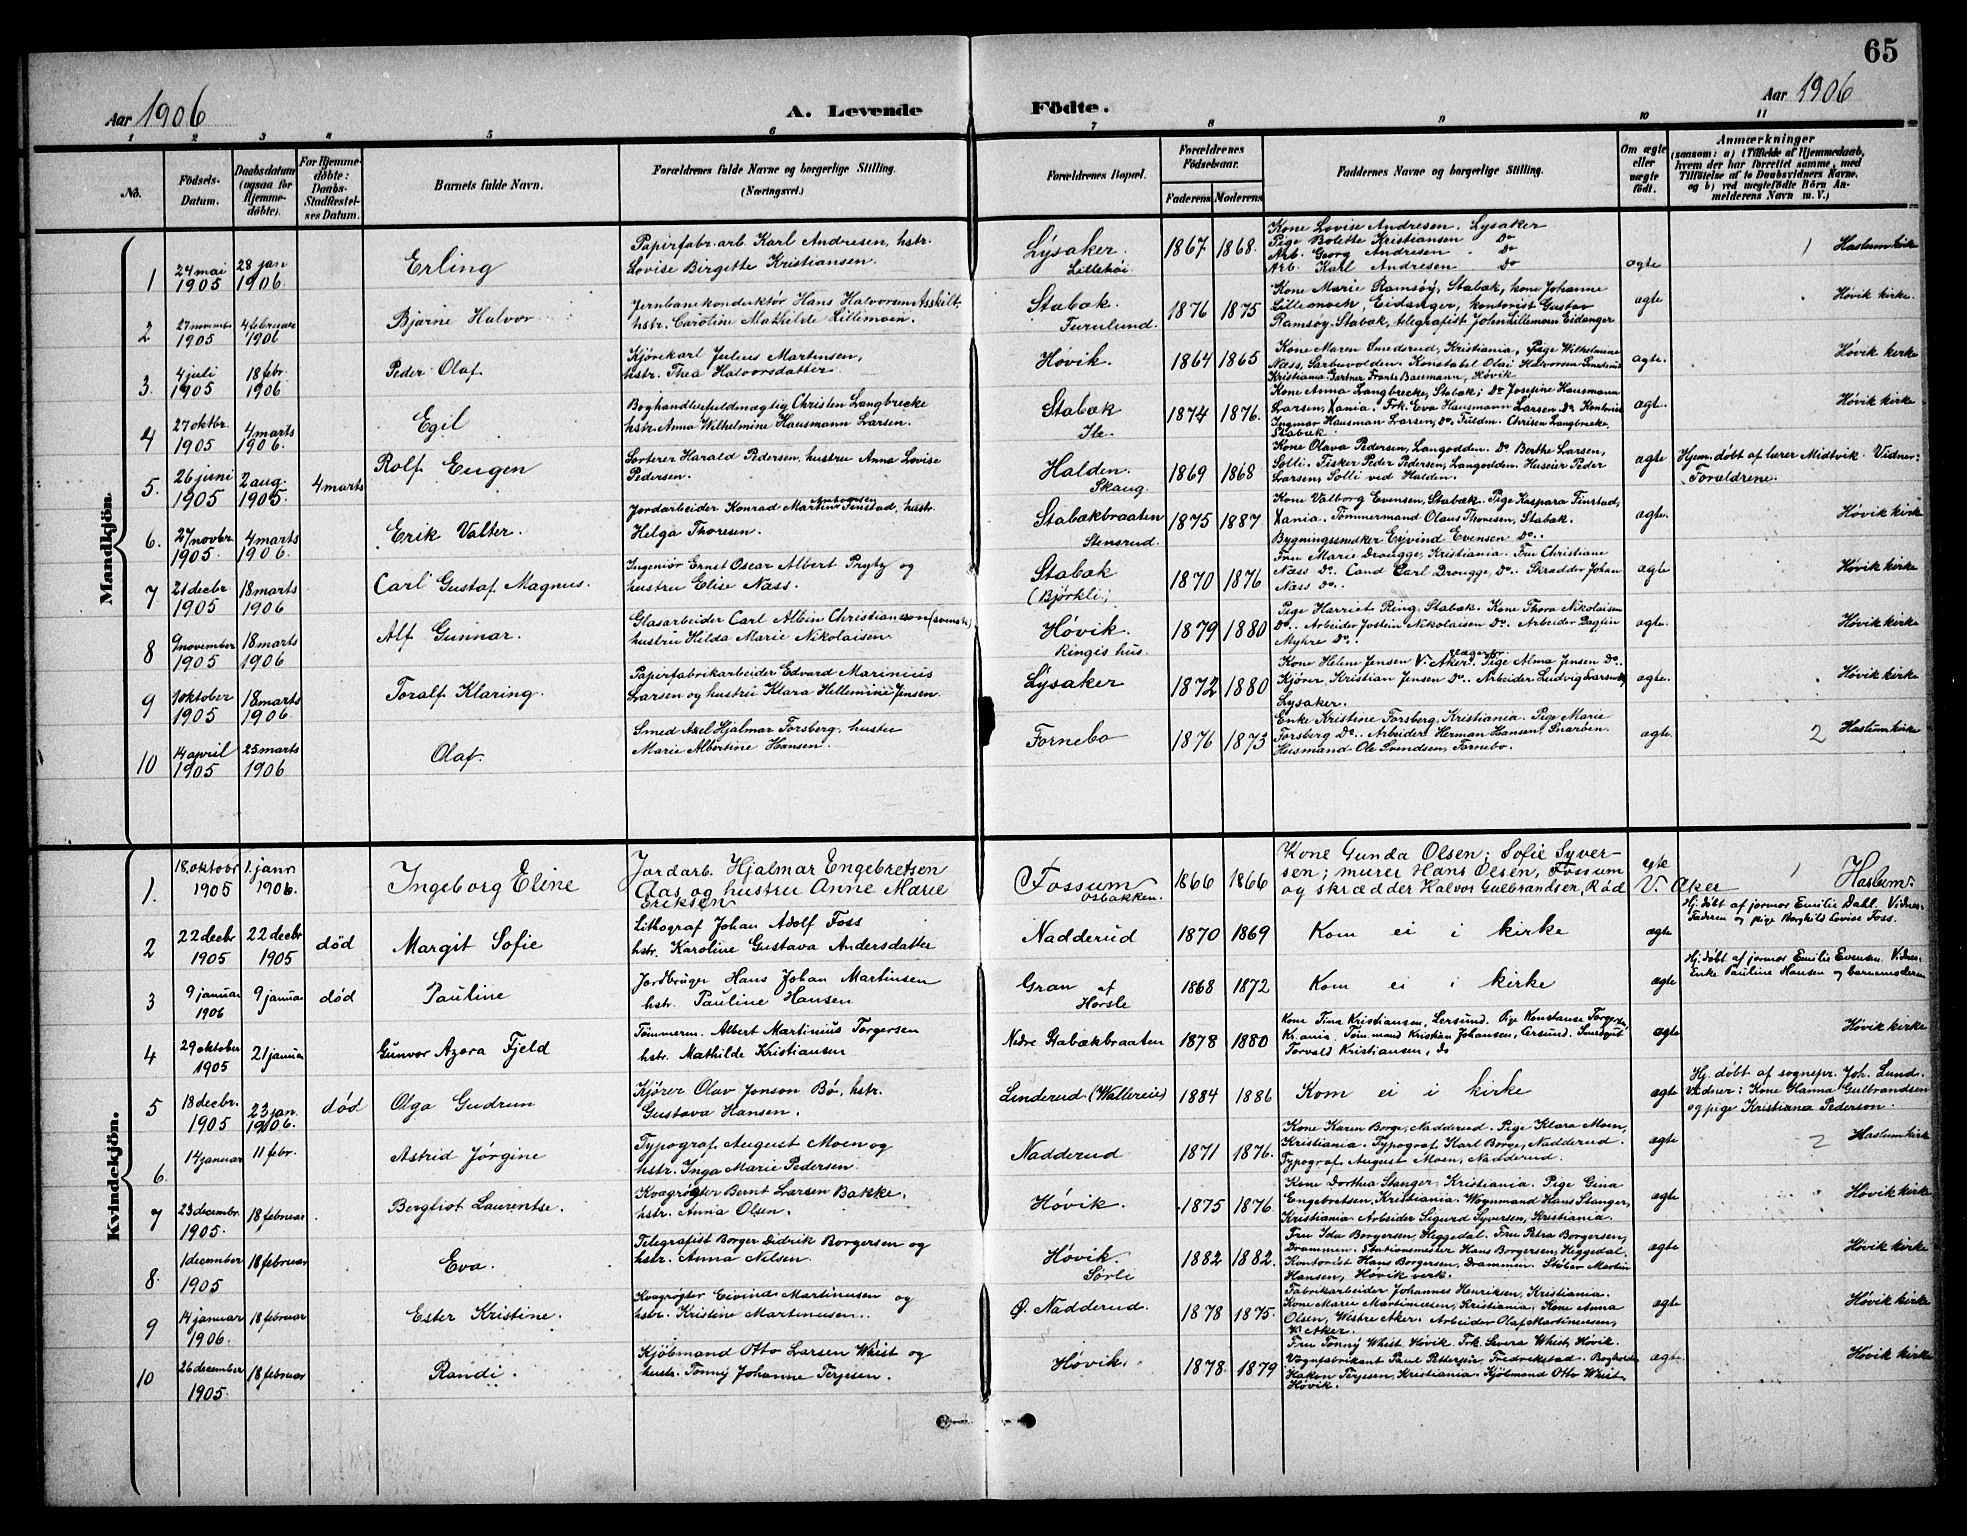 65
Aar 1906
A. Levende
Födte.
Aar 1906
1 2 3 4 5 6 7 8 9 10 11
No.
Födsels-
Datum.
Daabsdatum
(ogsaa for
Hjemme-
döbte).
For Hjemme-
döbte:
Daabs-
Stadfæstel-
ses Datum.
Barnets fulde Navn.
Forældrenes fulde Navne og borgerlige Stilling.
(Næringsvei.)
Forældrenes Bopæl.
Forældrenes
Födselsaar.
Faderens Moderens
Faddernes Navne og borgerlige Stilling.
Om ægte
eller
uægte
födt.
Anmærkninger
(saasom: a) i Tilfælde af Hjemmedaab,
hvem der har forrettet samme, med
Tilföielse af to Daabsvidners Navne,
og b) ved uægtefödte Börn An-
melderens Navn m. V.)
Mandkjön.
1
24 mai
1905
28 jan
1906.
Erling
Papirfabr. arb. Karl Andresen, hstr.
Lovise Birgitte Kristiansen.
Lysaker.
Lillehöi
1867 1868.
Kone Lovise Andresen, Lysaker
Pige Bolette Kristiansen Do
Arb. Georg Andresen Do
Arb. Karl Andresen Do
ægte
1 Haslum kirke
2
27 novemb.
1905
4 februar
1906
Bjarne Halvor
Jernbanekonduktør Hans Halvorsen Asskilt.
hstr. Caroline Mathilde Lillemoen.
Stabæk.
Furulund.
1876 1875
Kone Marie Ramsöy, Stabæk, kone Johanne
Lillemoen Eidanger, kontorist Gustav
Ramsöy, Stabæk, telegrafist John Lillemoen Eidanger
ægte
Høvik kirke.
3.
4 juli
1905
18 febr
1906
Peder Olaf
Kjörekarl Julius Martinsen,
hstr. Thea Halvorsdatter.
Høvik.
1864 1865
Kone Maren Smedsrud, Kristiania, Pige Wilhelmine
Næss, Sarbuvolden, Konstabel Olai Halvorsen Smedsrud
Kristiania. Gartner Frants Baumann, Høvik
ægte.
Høvik kirke
4
27 oktbr.
1905
4 marts
1906.
Egil
Boghandlerfuldmægtig Christen Langbrekke
hstr. Anna Wilhelmine Hausmann Larsen.
Stabæk
Ile.
1874 1876.
Kone Anna Langbrekke, Stabæk; Do Josefine Hausmann
Larsen, Xania. Frk. Eva Hausmann Larsen Do. Kontorist
Ingmar Hausman Larsen, Do. Fuldm. Chrisen Langbrekke,
Stabæk.
ægt.
Høvik kirke
5.
26 juni
1905
2 aug.
1905.
4 marts
Rolf Eugen
Sorterer Harald Pedersen, hustru Anna Lovise
Pedersen.
Halden.
Skaug.
1869 1868
Kone Olava Pedersen, Langodden. Do Berthe Larsen,
Solli. Fisker Peder Pedersen, Langodden. Huseier Peder
Larsen, Solli ved Halden.
ægte
Hjem.döbt af lærer Midtvik. Vidner:
Forældrene.
6.
27 novbr.
1905.
4 marts
1906.
Erik Valter.
Jordarbeider Konrad Martin Antonsen Finstad, hustr.
Helga Thoresen.
Stabækbraaten
Stensrud.
1875 1887
Kone Valborg Evensen, Stabæk. Pige Kaspara Finstad,
Xania. Tømmermand Olaus Thoresen, Stabæk.
Bygningssnedker Eyvind Evensen Do..
ægte.
Høvik kirke
7
21 decbr
1905
18 marts
1906
Carl Gustaf Magnus.
Ingeniör Ernst Oscar Albert Prytz og
hustru Elise Næss.
Stabæk
(Björkli)
1870 1876
Fru Marie Drougge, Kristiania. Fru Christiane
Næss Do. Cand Carl Drougge, Do.. Skrædder Johan
Næss Do..
ægte
Høvik kirke
8
9 november
1905
18 marts
1906
Alf Gunnar.
Glasarbeider Carl Albin Christiansson (svensk)
hustru Hilda Marie Nikolaisen.
Høvik.
Ringis hus.
1879 1880
Pige Harriet Ring, Stabæk. Kone Thora Nikolaisen
Do.. Arbeider Jostein Nikolaisen Do. Arbeider Dagfin
Myhre Do.
ægte.
Høvik kirke
9
1 oktober
1905
18 marts
1906.
Toralf Klaring.
Papirfabrikarbeider Edvard Marinius
Larsen og hustru Klara Hellemine Jensen.
Lysaker
1872 1880
Kone Helene Jensen V. Aker. Pige Alma Jensen Do..
Kjörer Kristian Jensen Do.. Arbeider Ludvig Larsen
Lysaker.
ægte.
Høvik kirke
10
14 april
1905
25 marts
1906
Olaf.
Smed Axel Hjalmar Forsberg, hustru
Marie Albertine Hansen.
Fornebo
1876 1873
Enke Kristine Forsberg, Kristiania. Pige Marie
Forsberg Do.. Arbeider Herman Hansen, Snaröen.
Husmand Ole Svendsen, Fornebo.
ægte.
2 Haslum kirke
Kvindekjön.
1.
18. oktobr
1905
1. janr
1906.
Ingeborg Eline
Jordarb. Hjalmar Engebretsen
Aas og hustru Anne Marie
Eriksen
Fossum
Osbakken.
1866 1866
Kone Gunda Olsen; Sofie Syver-
sen; murer Hans Olsen, Fossum
og skrædder Halvor Gulbrandsen, Röd V. Aker
egte
1 Haslum.
2
22 decbr
1905
22 decbr
1905
död
Margit Sofie
Lithograf Johan Adolf Foss
hstr. Karoline Gustava Andersdatter
Nadderud
1870 1869
Kom ei i kirke
ægte
Hj. döbt af jormor Emilie Dahl. Vidner
Faderen og pige Borghild Lovise Foss.
3
9 januar
1906
9 januar
död
Pauline
Jordbruger Hans Johan Martinsen
hstr. Pauline Hansen
Gran af
Horsle
1868 1872
Kom ei i kirke
ægte
Hj. döbt af jormor Emilie Evensen. Vidner
Enke Pauline Hansen og barnemoderen
4
29 oktober
1905
21 januar
Gunvor Azora Fjeld
Tömmerm. Albert Martinius Torgersen
hstr. Mathilde Kristiansen
Nedre Stabækbraaten
1878 1880
Kone Tina Kristiansen, Lersund. Pige Konstanse Torgersen,
Kr.ania. Töm.mand Kristian Johansen, Lersund. Smedgut
Torvald Kristiansen, do
ægte
Høvik kirke
5
18 decbr.
1905
23 jan.
1906.
död
Olga Gudrun
Kjörer Olav Jonson Bö, hstr.
Gustava Hansen.
Linderud (Wallereie)
1884 1886
Kom ei i kirke
ægte
Hj. döbt af sognepr. Joh. Lund.
Vidner: Kone Hanna Gulbrandsen
og pige Kristiana Pederson.
6.
14 januar
11 febr.
Astrid Jørgine
Typograf August Moen og
hstr. Inga Marie Pedersen.
Nadderud
1871 1876.
Kone Karen Borge, Nadderud. Pige Klara Moen,
Kristiania. Typograf Karl Borge, Nadderud.
Typograf August Moen, Nadderud.
ægte
2 Haslum kirke
7
23 decembr.
1905.
18 februar
Bergliot Laurentse.
Kvægrögter Bernt Larsen Bakke,
hstr. Anna Olsen.
Høvik.
1875 1876
Kone Dorthea Stanger, Kristiania. Pige Gina
Engebretsen, Kristiania. Vognmand Hans Stanger,
Kristiania. Arbeider Sigurd Syversen, Kristiania.
ægte
Høvik kirke
8.
1 december
1905
18 februar
Eva.
Telegrafist Borger Didrik Borgersen og
hstr. Anna Nilsen.
Høvik
Sørli
1882 1882.
Fru Ida Borgersen, Heggedal. Fru Petra Borgersen,
Drammen. Stationsmester Hans Borgersen, Heggedal.
Kontorist Hans Borgersen, Drammen. Støber Martin
Hansen, Høvik verk.
ægte
Høvik kirke
9
14 januar
1906.
18 februar
Ester Kristine.
Kvægrögter Eivind Martinusen og
hstr. Kristine Martinusen.
Ø. Nadderud.
1878 1875.
Fabrikarbeider Johannes Henriksen, Kristiania.
Kone Marie Martinusen, Kristiania. Kone Anna
Olsen, Westre Aker. Arbeider Olaf Martinusen,
V. Aker.
ægte
Høvik kirke
10
26 december
1905.
18 februar
Randi.
Kjöbmand Otto Larsen Whist og
hustr. Tonny Johanne Terjesen.
Høvik.
1878 1879
Fru Tonny Whist, Høvik. Frk. Severa Whist, Høvik.
Vognfabrikant Paul Pettersen, Fredrikstad. Bogholder
Hakon Terjesen, Kristiania. Kjöbmand Otto Whist,
Høvik.
ægte.
Høvik kirke